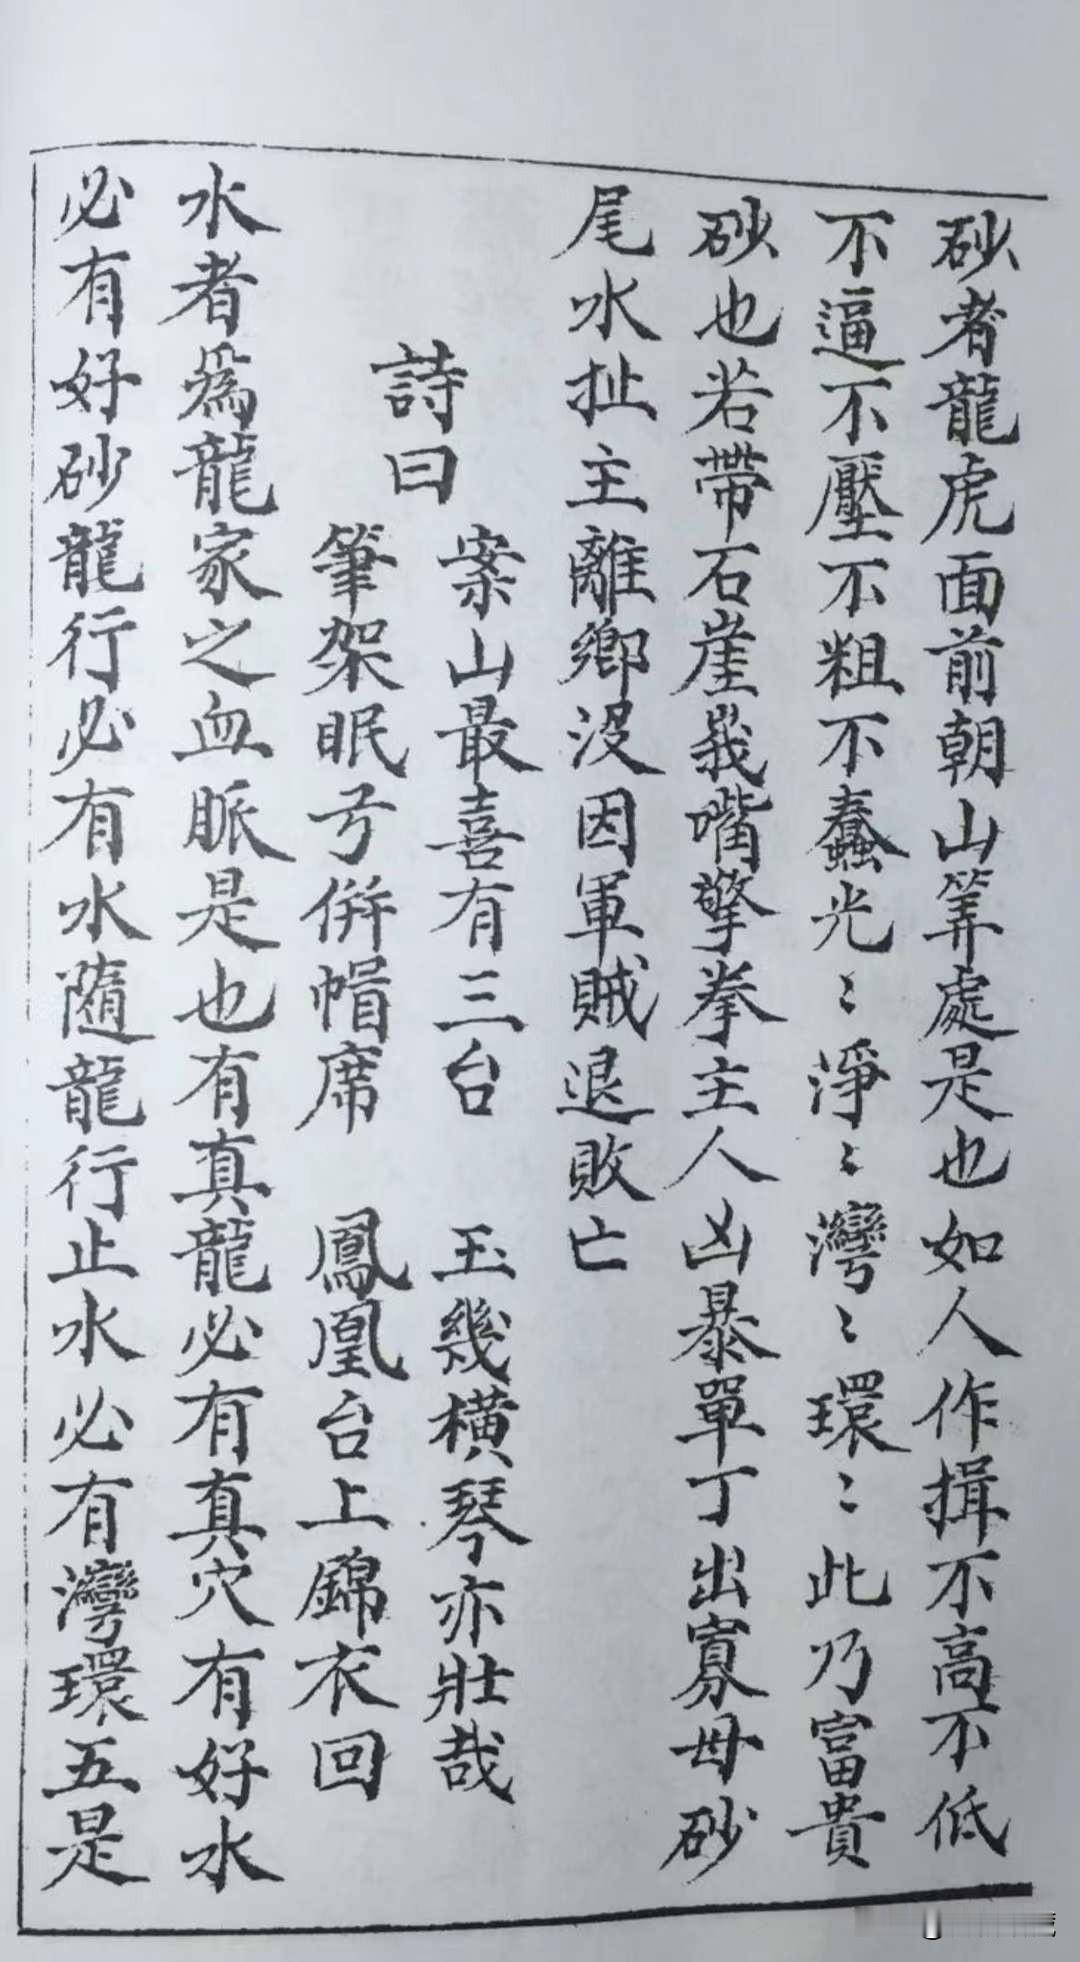 砂者龍虎面前朝山筭處是也如人作揖不高不低
不逼不壓不粗不蠢光〻淨〻灣〻環〻此乃富貴
砂也若帶石崖峩嘴擎拳主人凶暴單丁出寡母砂
尾水扯主離鄉沒因軍賊退敗亡
詩曰
案山最喜有三台 玉幾橫琴亦壯哉
筆架眠弓併帽席 鳳凰台上錦衣回
水者爲龍家之血脈是也有真龍必有真穴有好水
必有好砂龍行必有水隨龍行止水必有灣環五是